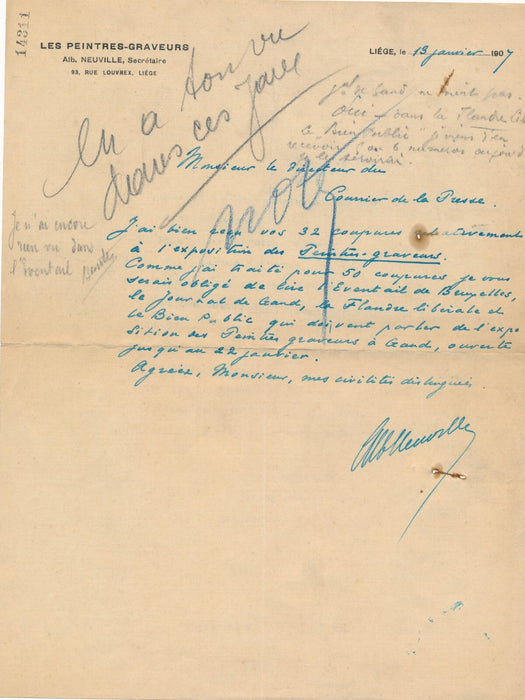 14311
LES PEINTRES-GRAVEURS
Alb. NEUVILLE, Secrétaire
93, RUE LOUVREX, LIÉGE
LIÉGE, le 13 janvier 1907
on a
dans ces jours
de Gand ne
Oui dans la Flandre lib
le "Bien Public" je viens d'en
recevoir 5 ou 6 numéros
Monsieur le Directeur du
Courrier de la Presse.
Je n'ai encore
rien vu dans
l'Eventail
J'ai bien reçu vos 32 coupures
à l'exposition des Peintres-graveurs.
Comme j'ai traité pour 50 coupures je vous
serais obligé de lire l'Eventail de Bruxelles,
le Journal de Gand, la Flandre libérale et
le Bien Public qui doivent parler de l'expo
sition des Peintres graveurs à Gand, ouverte
jusqu'au 22 janvier.
Agréez, Monsieur, mes civilités distinguées.
AlbNeuville